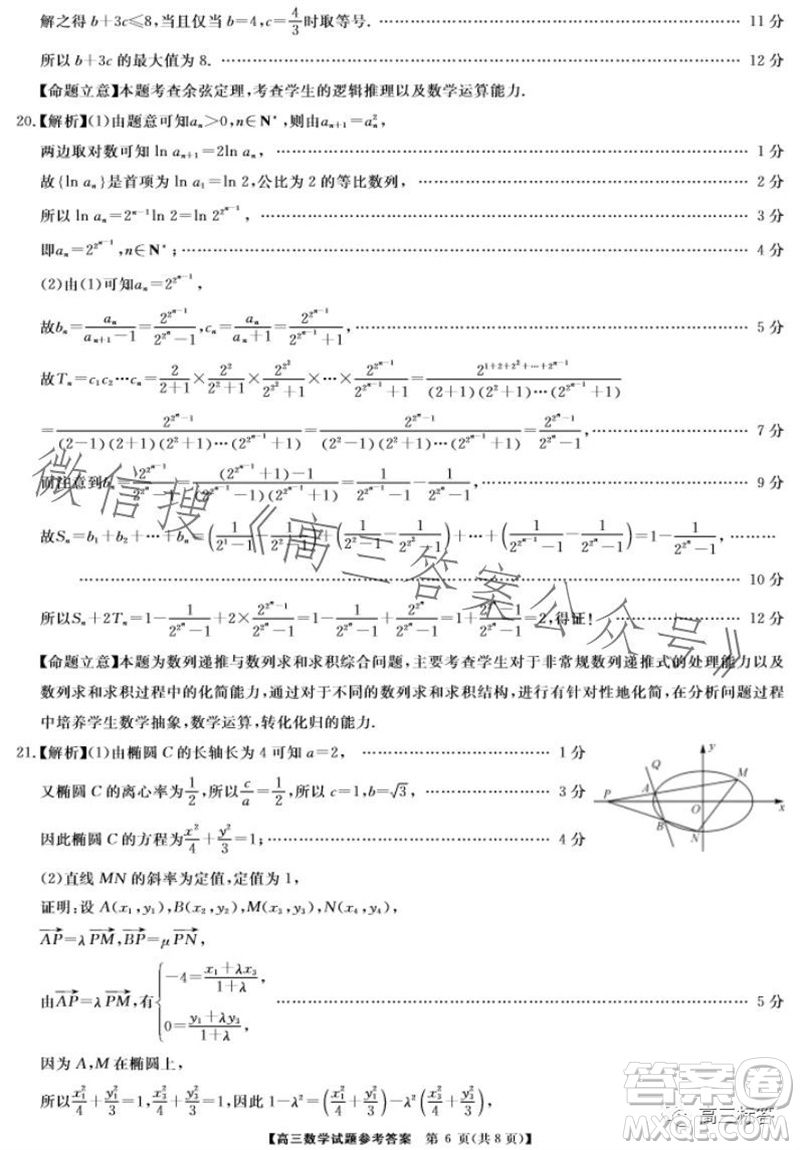 解之得 b+3c≤8,当且仅当 b=4,c=4/3时取等号. …… 11 分
所以 b+3c 的最大值为 8. …… 12 分
【命题立意】本题考查余弦定理,考查学生的逻辑推理以及数学运算能力.
20.【解析】(1)由题意可知aₙ>0,n∈N*,则由aₙ₊₁=aₙ²,
两边取对数可知 ln aₙ₊₁=2ln aₙ, …… 1 分
故{ln aₙ}是首项为 ln a₁=ln 2,公比为 2 的等比数列, …… 2 分
所以 ln aₙ=2^(n-1)ln 2=ln 2^(2^(n-1)), …… 3 分
即aₙ=2^(2^(n-1)),n∈N*; …… 4 分
(2)由(1)可知aₙ=2^(2^(n-1)),
故bₙ=aₙ/(aₙ₊₁-1)=2^(2^(n-1))/(2^(2^n)-1),cₙ=aₙ/(aₙ+1)=2^(2^(n-1))/(2^(2^(n-1))+1), …… 5 分
故Tₙ=c₁c₂⋯cₙ=2/(2+1)×2²/(2²+1)×2^(2²)/(2^(2²)+1)×⋯×2^(2^(n-1))/(2^(2^(n-1))+1)=2^(1+2+2²+⋯+2^(n-1))/((2+1)(2²+1)⋯(2^(2^(n-1))+1))
=2^(2^n-1)/((2-1)(2+1)(2²+1)⋯(2^(2^(n-1))+1))=2^(2^n-1)/((2²-1)(2²+1)⋯(2^(2^(n-1))+1))=2^(2^n-1)/(2^(2^n)-1), …… 7 分
而注意到bₙ=2^(2^(n-1))/(2^(2^n)-1)=((2^(2^(n-1))+1)-1)/(2^(2^n)-1)=1/(2^(2^(n-1))-1)-1/(2^(2^n)-1), …… 9 分
故Sₙ=b₁+b₂+⋯+bₙ=(1/(2¹-1)-1/(2²-1))+(1/(2²-1)-1/(2^(2²)-1))+⋯+(1/(2^(2^(n-1))-1)-1/(2^(2^n)-1))=1-1/(2^(2^n)-1),
…… 10 分
所以Sₙ+2Tₙ=1-1/(2^(2^n)-1)+2×2^(2^n-1)/(2^(2^n)-1)=1-1/(2^(2^n)-1)+2^(2^n)/(2^(2^n)-1)=2,得证! …… 12 分
【命题立意】本题为数列递推与数列求和求积综合问题,主要考查学生对于非常规数列递推式的处理能力以及
数列求和求积过程中的化简能力,通过对于不同的数列求和求积结构,进行有针对性地化简,在分析问题过程
中培养学生数学抽象,数学运算,转化化归的能力.
21.【解析】(1)由椭圆 C 的长轴长为 4 可知 a=2, …… 1 分
又椭圆 C 的离心率为1/2,所以c/a=1/2,所以 c=1,b=√3, …… 3 分
因此椭圆 C 的方程为x²/4+y²/3=1; …… 4 分
y
Q
M
A
P
O
x
B
N
(2)直线 MN 的斜率为定值,定值为 1,
证明:设 A(x₁,y₁),B(x₂,y₂),M(x₃,y₃),N(x₄,y₄),
AP→=λPM→,BP→=μPN→,
由AP→=λPM→,有{-4=(x₁+λx₃)/(1+λ), 0=(y₁+λy₃)/(1+λ), …… 5 分
因为 A,M 在椭圆上,
所以x₁²/4+y₁²/3=1,x₃²/4+y₃²/3=1,因此 1-λ²=(x₁²/4+y₁²/3)-λ²(x₃²/4+y₃²/3),
【高三数学试题参考答案 第 6 页(共 8 页)】
微信搜《高三答案公众号》
答案卷
高三标答